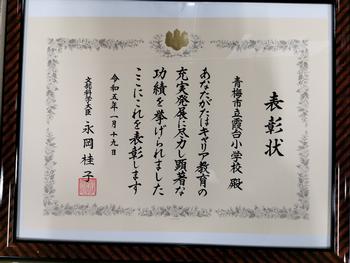 表彰状
青梅市立霞台小学校 殿
あなたがたはキャリア教育の
充実発展に尽力し顕著な
功績を挙げられました
ここにこれを表彰します
令和五年一月十九日
文部科学大臣 永岡桂子